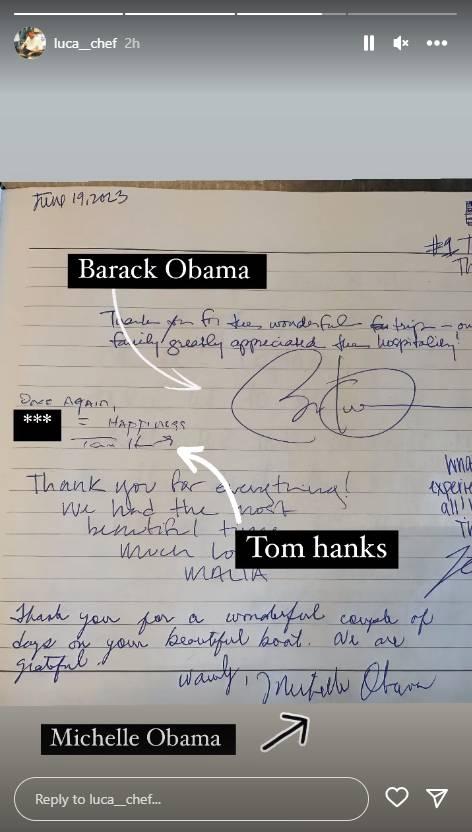 luca__chef 2h
June 19, 2023
#1 T
Th
Barack Obama
Thank you for the wonderful trip - our
family greatly appreciated the hospitality!
Once Again,
*** = HAPPINESS
Thank you for everything!
We had the most
beautiful time
Much Lo
MALIA
experie
all!
Th
Tom hanks
Thank you for a wonderful couple of
days on your beautiful boat. We are
grateful.
Warmly, Michelle Obama
Michelle Obama
Reply to luca__chef...